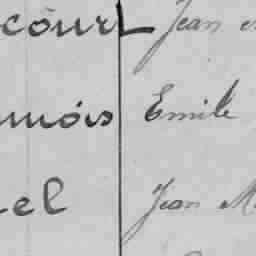 court Jean
mois Emile
el Jean M